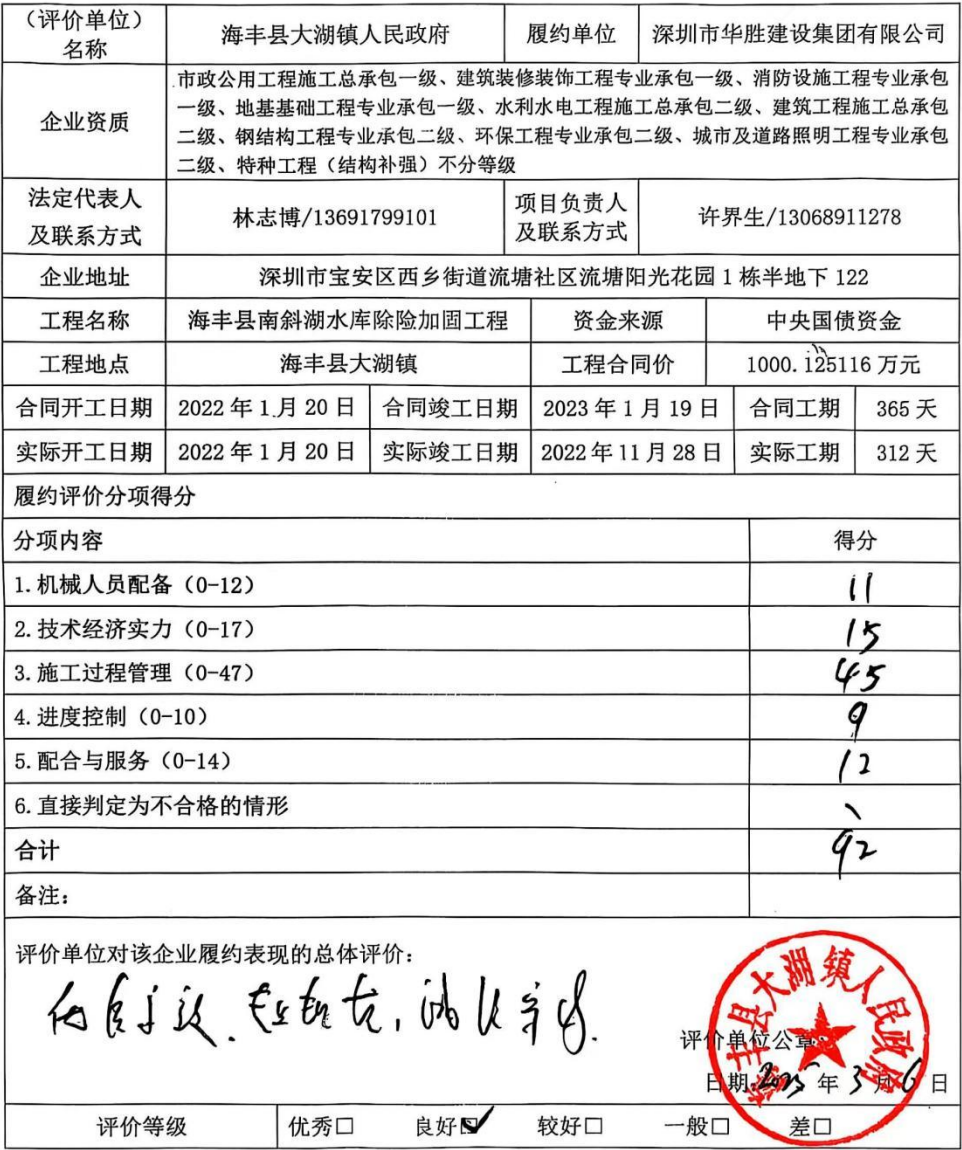 （评价单位）名称 海丰县大湖镇人民政府 履约单位 深圳市华胜建设集团有限公司
企业资质
市政公用工程施工总承包一级、建筑装修装饰工程专业承包一级、消防设施工程专业承包
一级、地基基础工程专业承包一级、水利水电工程施工总承包二级、建筑工程施工总承包
二级、钢结构工程专业承包二级、环保工程专业承包二级、城市及道路照明工程专业承包
二级、特种工程（结构补强）不分等级
法定代表人及联系方式 林志博/13691799101 项目负责人及联系方式 许界生/13068911278
企业地址 深圳市宝安区西乡街道流塘社区流塘阳光花园1栋半地下122
工程名称 海丰县南斜湖水库除险加固工程 资金来源 中央国债资金
工程地点 海丰县大湖镇 工程合同价 1000.125116万元
合同开工日期 2022年1月20日 合同竣工日期 2023年1月19日 合同工期 365天
实际开工日期 2022年1月20日 实际竣工日期 2022年11月28日 实际工期 312天
履约评价分项得分
分项内容 得分
1.机械人员配备（0-12） 11
2.技术经济实力（0-17） 15
3.施工过程管理（0-47） 45
4.进度控制（0-10） 9
5.配合与服务（0-14） 12
6.直接判定为不合格的情形 、
合计 92
备注：
评价单位对该企业履约表现的总体评价：
海丰县大湖镇人民政府
评价单位公章：
日期：2025年3月6日
评价等级 优秀□ 良好☑ 较好□ 一般□ 差□